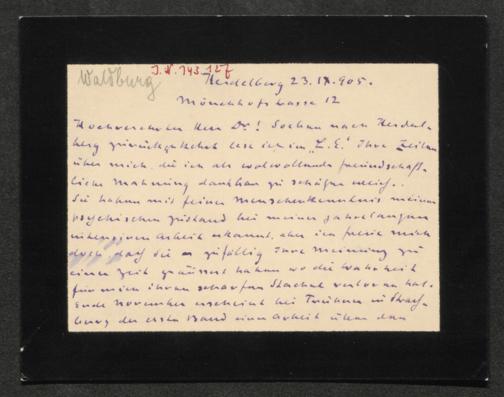 Waldburg
J. N. 143.127
Heidelberg 23.IX.905.
Mönchhofstrasse 12
Hochverehrter Herr Dr! Soeben nach Heidel-
berg zurückgekehrt lese ich im „L.E." Ihre Zeilen
über mich, die ich als wolwollende freundschaft-
liche Mahnung dankbar zu schäzen weiss.
Sie haben mit feiner Menschenkenntnis meinen
psychischen Zustand bei meiner jahrelangen
intensiven Arbeit erkannt, aber ich freue mich
doch, dass Sie zufällig Ihre Meinung zu
einer Zeit geäussert haben wo die Wahrheit
für mich ihren scharfen Stachel verloren hat.
Ende November erscheint bei Trübner in Strass-
burg der erste Band einer Arbeit über den